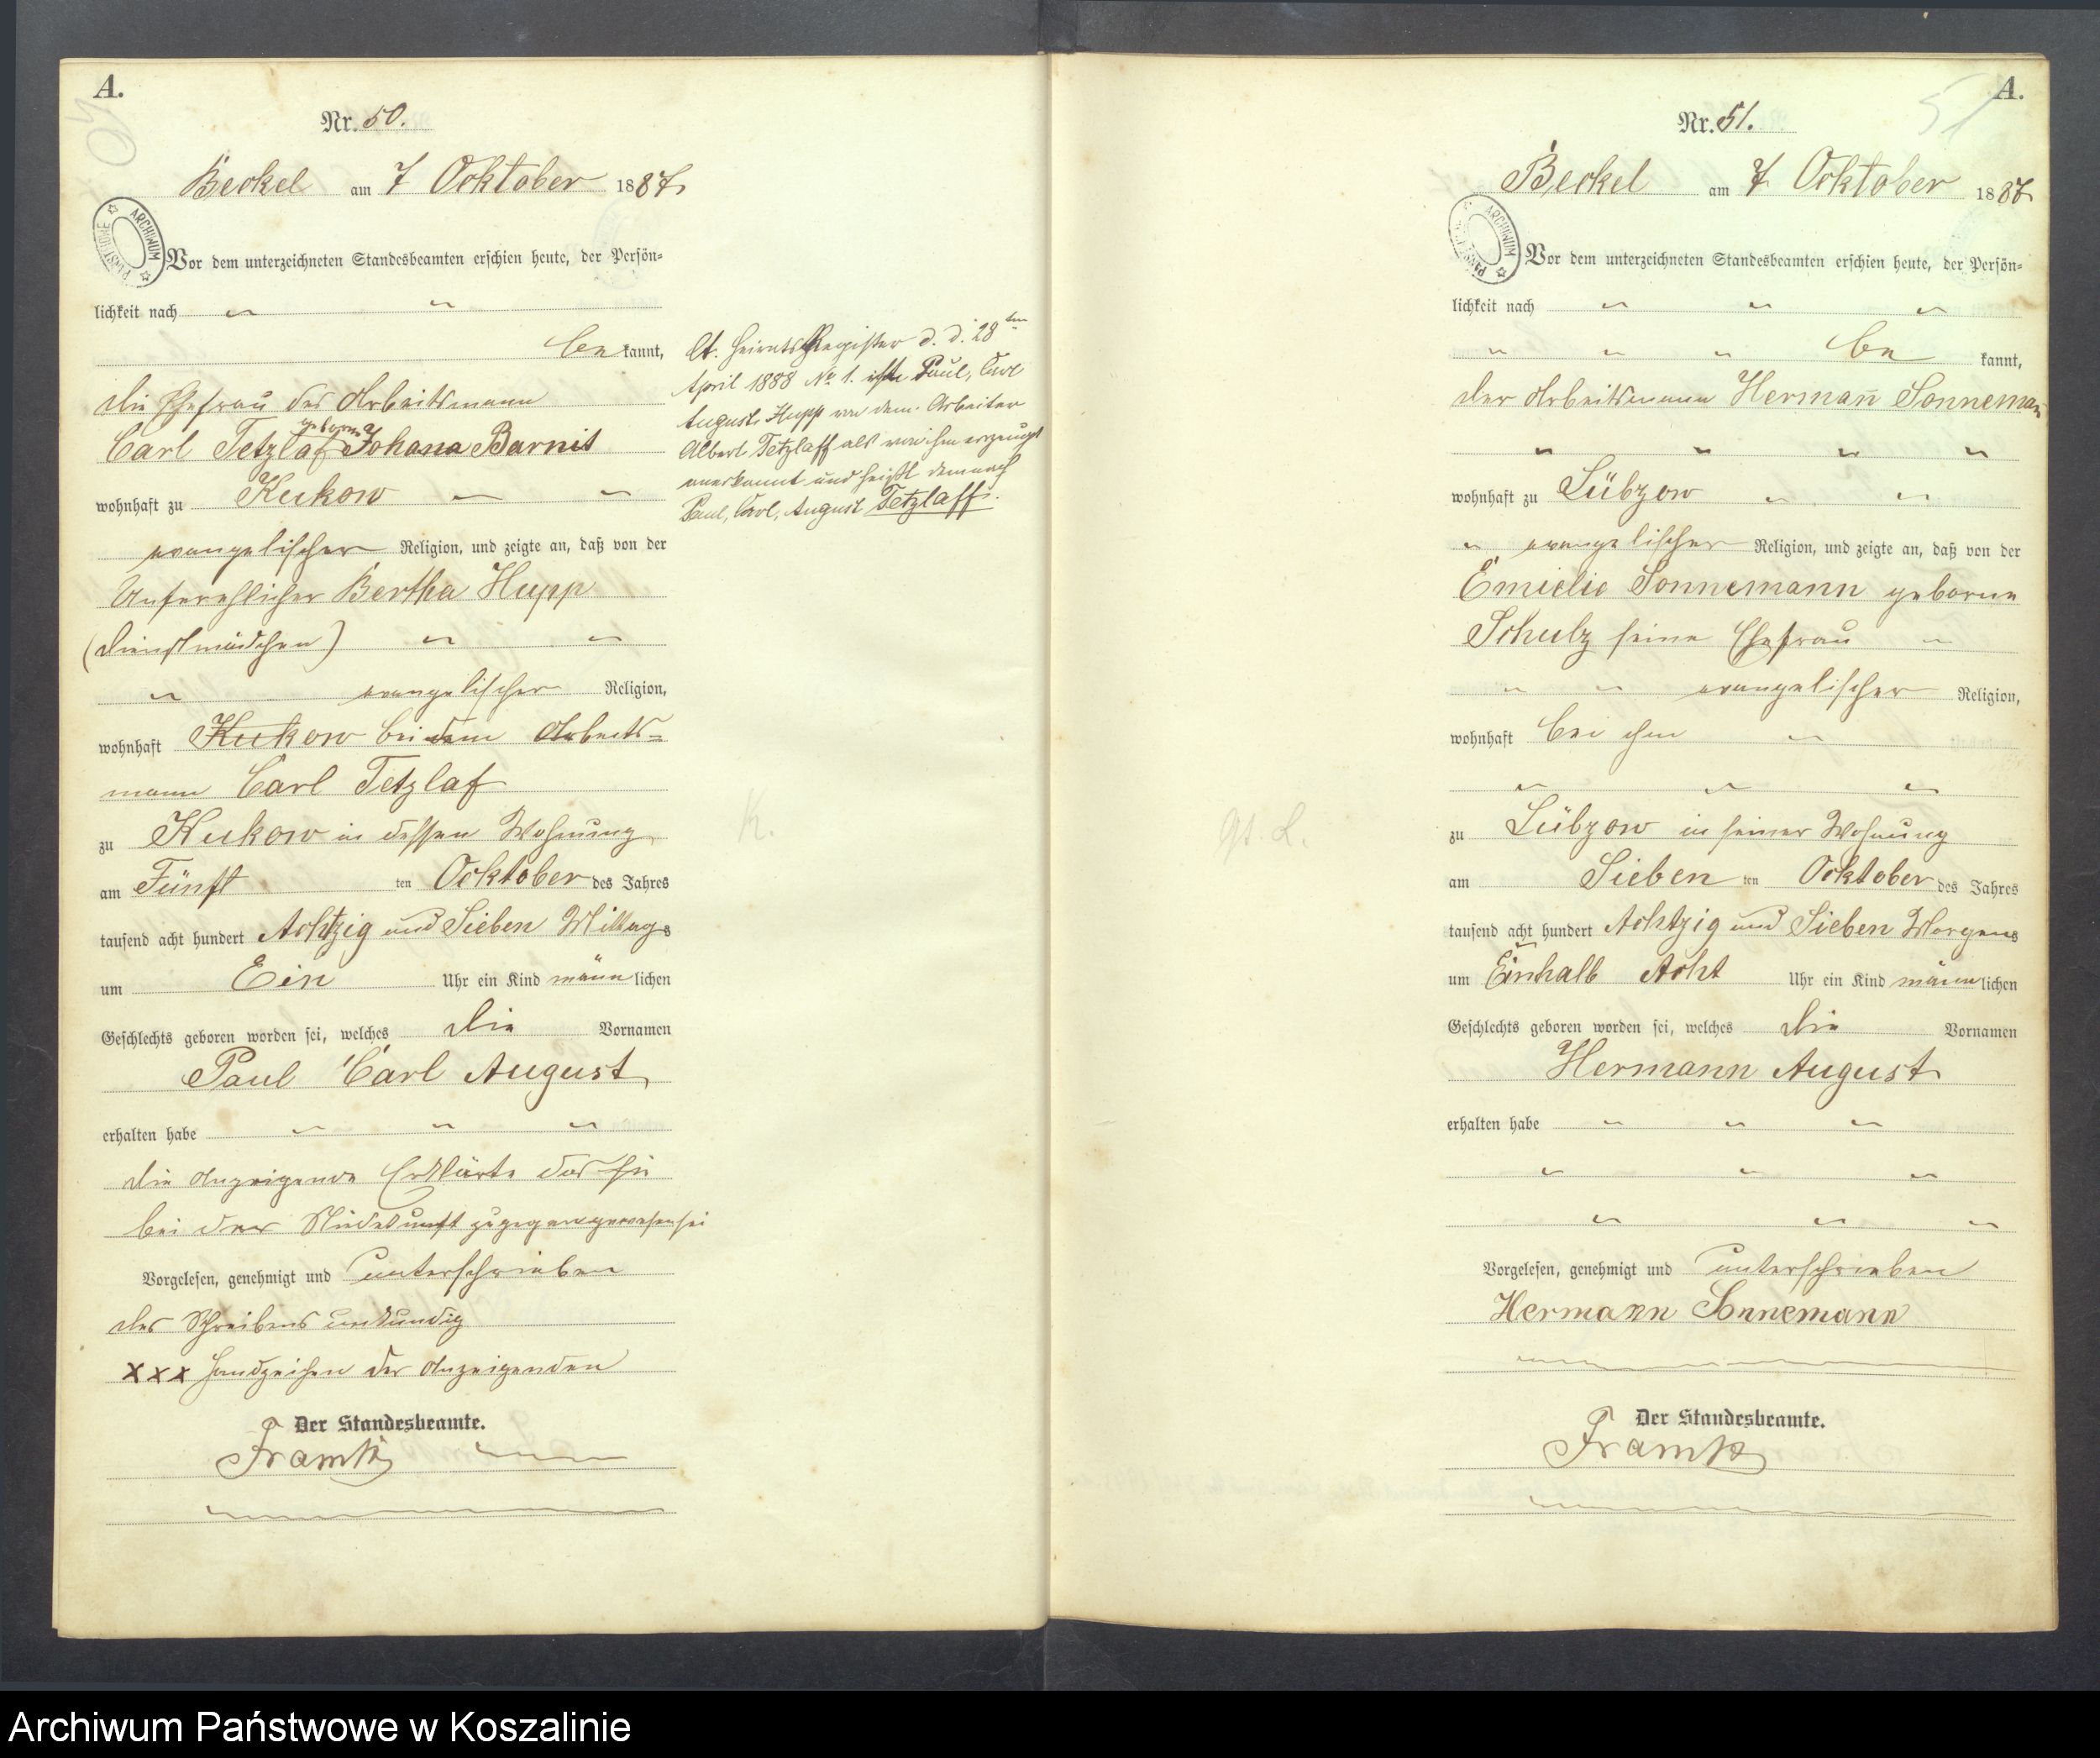 A.
Nr. 50.
Beckel am 7 Ocktober 1887
ARCHIWUM PAŃSTWOWE
Vor dem unterzeichneten Standesbeamten erschien heute, der Persön=
lichkeit nach
be kannt,
die Ehefrau des Arbeitsmann
geborne
Carl Tetzlaf Johana Barnit
wohnhaft zu Kukow
evangelischer Religion, und zeigte an, daß von der
Unferehlicher Bertha Hupp
(Dienstmädchen)
evangelischer Religion,
wohnhaft Kukow bei dem Arbeits=
mann Carl Tetzlaf
zu Kukow in dessen Wohnung
am Fünft ten Ocktober des Jahres
tausend acht hundert Achtzig und Sieben Mittags
um Ein Uhr ein Kind männ lichen
Geschlechts geboren worden sei, welches die Vornamen
Paul Carl August
erhalten habe
die Anzeigende Erklärte das sie
bei der zugegen gewesen sei
Vorgelesen, genehmigt und unterschrieben
des Schreibens unkundig
xxx Handzeichen der Anzeigenden
Der Standesbeamte.
Framk
lt. Heirats Register d. d. 28ten
April 1888 No 1. ist Paul, Carl
August Hupp von dem Arbeiter
Albert Tetzlaff als von ihm erzeugt
anerkannt und heißt demnach
Paul, Carl, August Tetzlaff.
K.
A.
51
Nr. 51.
Beckel am 7 Ocktober 1887
ARCHIWUM PAŃSTWOWE
Vor dem unterzeichneten Standesbeamten erschien heute, der Persön=
lichkeit nach
be kannt,
der Arbeitsmann Hermañ Sonneman
wohnhaft zu Lübzow
evangelischer Religion, und zeigte an, daß von der
Emielie Sonnemann geborne
Schulz seine Ehefrau
evangelischer Religion,
wohnhaft bei ihm
zu Lübzow in seiner Wohnung
am Sieben ten Ocktober des Jahres
tausend acht hundert Achtzig und Sieben Morgens
um Einhalb Acht Uhr ein Kind männ lichen
Geschlechts geboren worden sei, welches die Vornamen
Hermann August
erhalten habe
Vorgelesen, genehmigt und unterschrieben
Hermann Sonnemann
Der Standesbeamte.
Framk
Archiwum Państwowe w Koszalinie